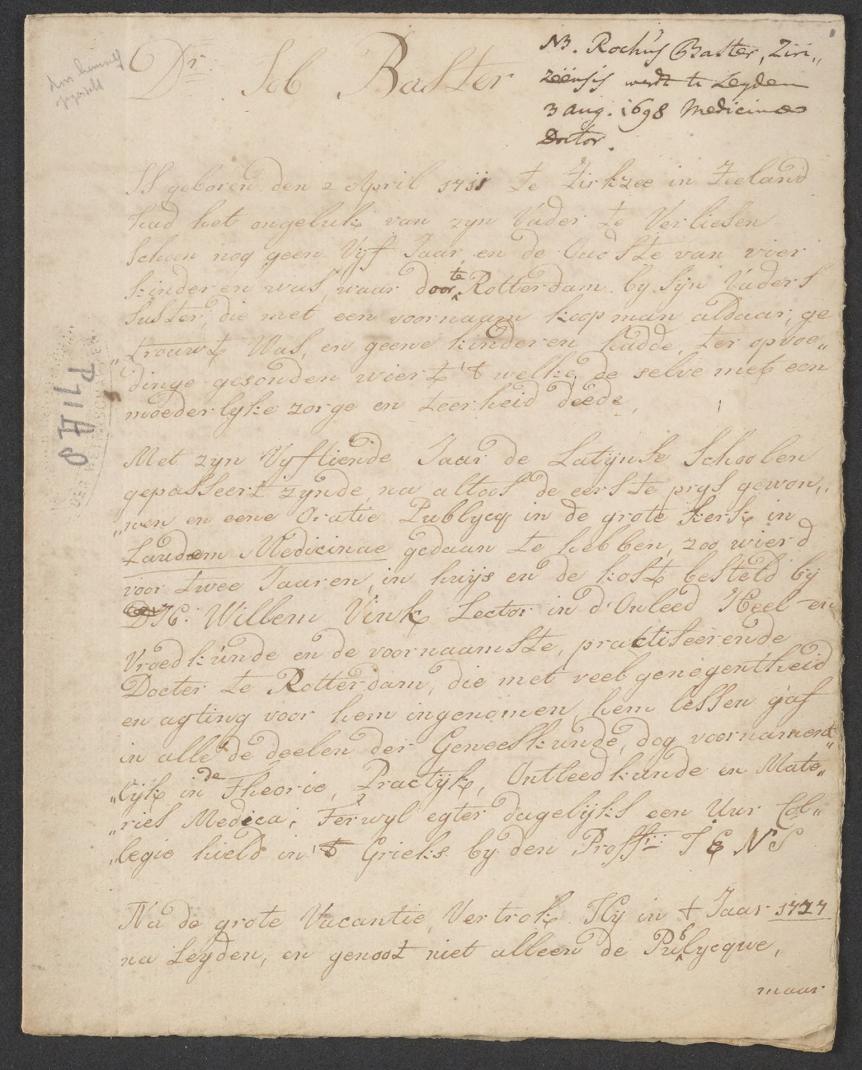 door hemself
Dr. Job Baster
NB. Rochus Baster, Ziri„
zëensis werdt te Leyden
3 Aug. 1698 Medicinae
Doctor.
IS geboren den 2 April 1711 te Zirkzee in Zeeland
had het ongeluk van zyn Vader te Verliesen
Schoon nog geen Vyf Jaar, en de Oudste van vier
kinderen was, waar door te Rotterdam by syn Vaders
Suster, die met een voornaam koopman aldaar, ge
„trouwt Was, en geene kinderen hadde, ter opvoe„
dinge gesonden wiert 't welke de selve met een
moederlyke zorge en teerheid deede,
Met zyn Vyftiende Jaar de Latynse Schoolen
gepasseert zynde, na altoos de eerste prys gewon„
„nen en eene Oratie Publycq in de grote kerk in
Laudem Medicinae gedaan te hebben, zoo wierd
voor twee Jaaren in huys en de kost besteld by
DH: Willem Vink Lector in d'Onleed Heel en
Vroedkunde en de voornaamste, practiseerende
Docter te Rotterdam, die met veel genegentheid
en agting voor hem ingenomen, hem lessen gaf
in alle de deelen der Geneeskunde, dog voornament
„lyk in de Theorie, Practyk, Ontleedkunde en Mate„
„ries Medica; Terwyl egter dagelyks een Uur Col„
„legie hield in 't Grieks by den Proffr:
Na de grote Vacantie, Vertrok Hy in t Jaar 1727
na Leyden, en genoot niet alleen de Publycque,
maar
P 71 A 8